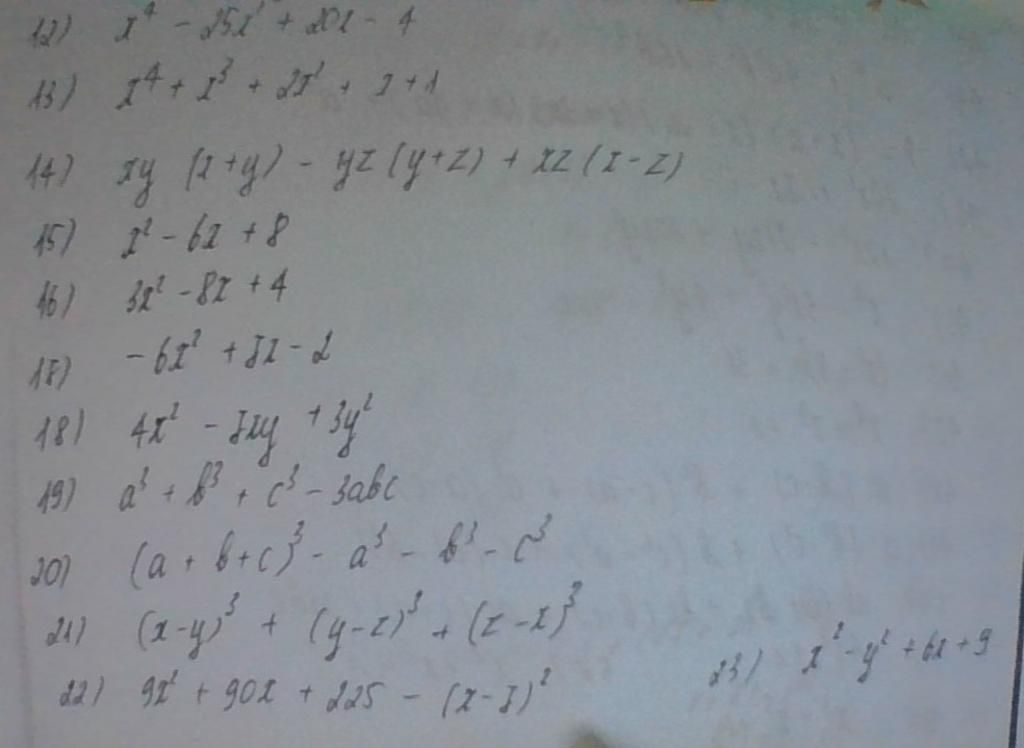 12) x⁴ - 25x² + 20x - 4
13) x⁴ + x³ + 2x² + x + 1
14) xy (x+y) - yz (y+z) + xz (x-z)
15) x² - 6x + 8
16) 3x² - 8x + 4
17) - 6x² + 7x - 2
18) 4x² - 7xy + 3y²
19) a³ + b³ + c³ - 3abc
20) (a + b + c)³ - a³ - b³ - c³
21) (x-y)³ + (y-z)³ + (z-x)³
22) 9x² + 90x + 225 - (x-7)²
23) x² - y² + 6x + 9